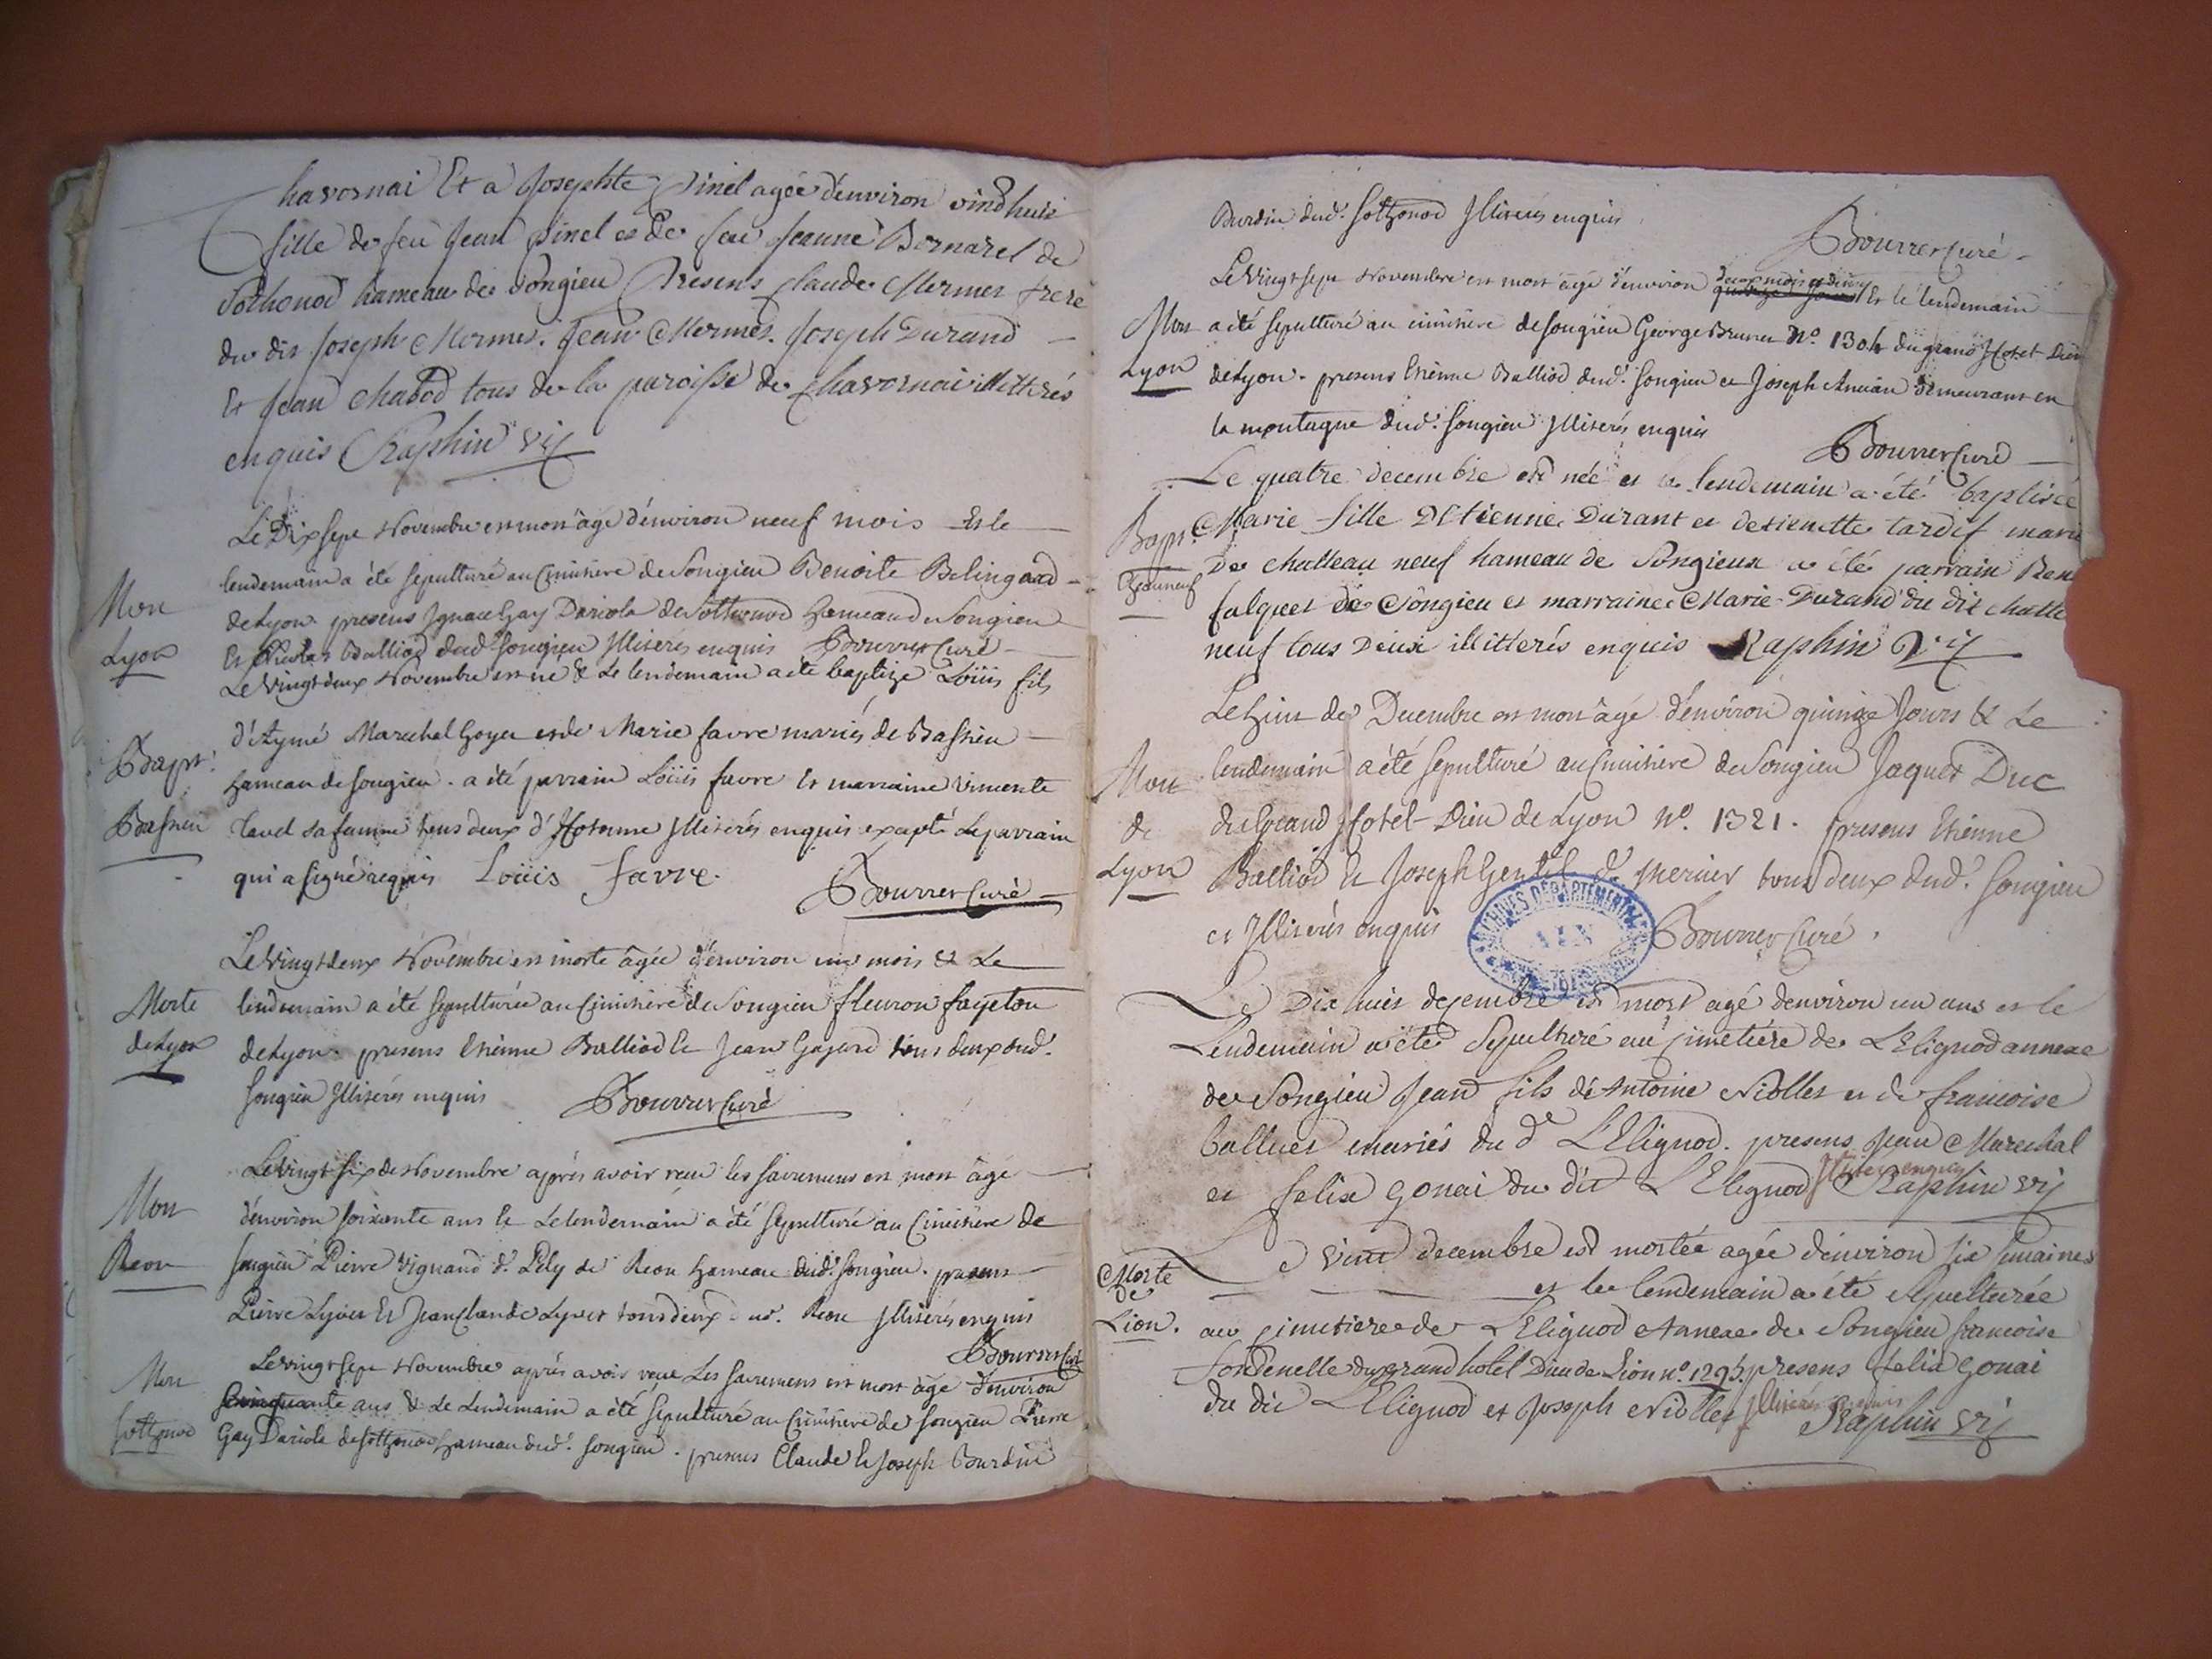 Chavornai Et a Josephte Pinel agée d'environ vind huit
fille de feu Jean pinel et De feu Jeanne Bornarel de
Sothonod hameau de Songieu Presens Claude Mermet frere
du dit Joseph Mermet. Jean Mermet. Joseph Durand
Et Jean chabod tous de la paroisse de Chavornai illitterés
enquis Raphin vic
Le Dix sept Novembre est mort âgé d'environ neuf mois Et le
lendemain a été sepulturé au Cimitiere de Songieu Benoite Belingard
de Lyon. presens Ignace Gay Dariola de Sothonod hameau de Songieu
Et Balliod dud. Songieu Illiterés enquis Bourrer Curé
Mort
Lyon
Le vingt deux Novembre est né & Le lendemain a été baptizé Loüis fils
d'Aymé Marechal Goyer et de Marie favre mariés de Bassieu
hameau de songieu. a été parrain Loüis favre Et marraine
Tavel sa femme tous deux d' Illiterés enquis excepté Le parrain
qui a signé requis Loüis favre.
Bourrer Curé
Bapt.
Bassieu
Le vingt deux Novembre est morte âgée d'environ un mois & Le
lendemain a été sepulturée au Cimitiere de Songieu fleuron fayeton
de Lyon. presens Etienne Balliod Et Jean tous deux dud.
songieu Illiterés enquis Bourrer Curé
Morte
de Lyon
Le vingt six de Novembre après avoir reçu les sacremens est mort âgé
d'environ soixante ans Et Le lendemain a été sepulturé au Cimitiere de
songieu Pierre vignand d. Pely de Reou hameau dud. songieu. presens
Pierre Lyvet Et Jean Claude Lyvet tous deux dud. Reou Illiterés enquis
Bourrer Curé
Mort
Reou
Le vingt sept Novembre après avoir reçu Les sacremens est mort âgé d'environ
Cinquante ans & Le Lendemain a été sépulturé au Cimitiere de songieu Pierre
Gay Dariola de sothonod hameau dud. songieu. presens Claude Et Joseph Bourdin
Mort
sothonod
Burdin dud. sothonod Illiterés enquis
Bourrer Curé
Le vingt sept Novembre est mort âgé d'environ deux mois et demy Et le lendemain
a été sepulturé au cimitiere de songieu George Brunet N°. 1304 du grand Hotel Dieu
de Lyon. presens Etienne Balliod dud. songieu et Joseph Ancian demeurant en
la montagne dud. songieu Illiterés enquis
Bourrer Curé
Mort
Lyon
Le quatre decembre est née et le lendemain a été baptisée
Marie fille D'Etienne Durant et detienette tardif mari
De chatteau neuf hameau de Songieux a été parrain Ben
falquet de Songieu et marraine Marie Durand du dit chatte
neuf tous Deux illitterés enquis Raphin Vic
Bapt.
Le huit de Decembre est mort âgé d'environ quinze Jours & Le
lendemain a été sepulturé au Cimitiere de Songieu Jaques Duc
du Grand Hotel-Dieu de Lyon N°. 1321. presens Etienne
Balliod Et Joseph Gentil d. mernier tous deux dud. songieu
et Illiterés enquis Bourrer Curé.
Mort
de
Lyon
ARCHIVES DÉPARTEMENTALES
AIN
Le Dix huit decembre est mort agé denviron un ans et le
Lendemain a été Sepulturé au cimetiére de L'Elignod annexe
de Songieu Jean fils de Antoine Niollet et de francoise
balluet mariés du d L'Elignod. presens Jean Marechal
et felix gonai du dit L'Elignod Illiterés enquis Raphin vic
Le vint decembre est mortée agée denviron six semaines
et le lendemain a été sepulturée
au cimetiere de L'Elignod Annexe de Songieu francoise
fondenelle du grand hotel Dieu de Lion n°. 1293. presens felix gonai
du dit L'Elignod et Joseph Niollet Illiterés enquis
Raphin Vic
Morte
de
Lion.